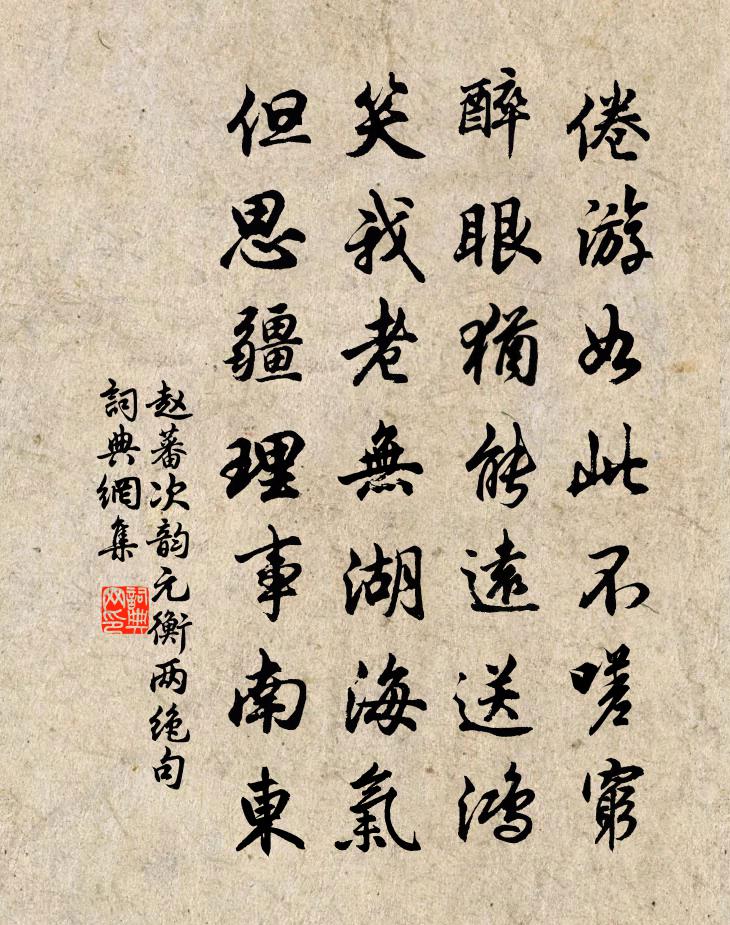 倦游如此不嗟窮
醉眼猶能遠送鴻
笑我老無湖海氣
但思疆理事南東
赵蕃次韵元衡两绝句
詞典網集
詞典网印